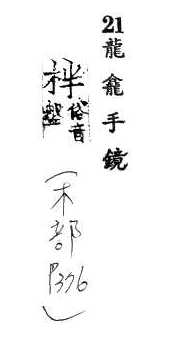 21 龍龕手鏡
柈俗音盤
(木部 P376)